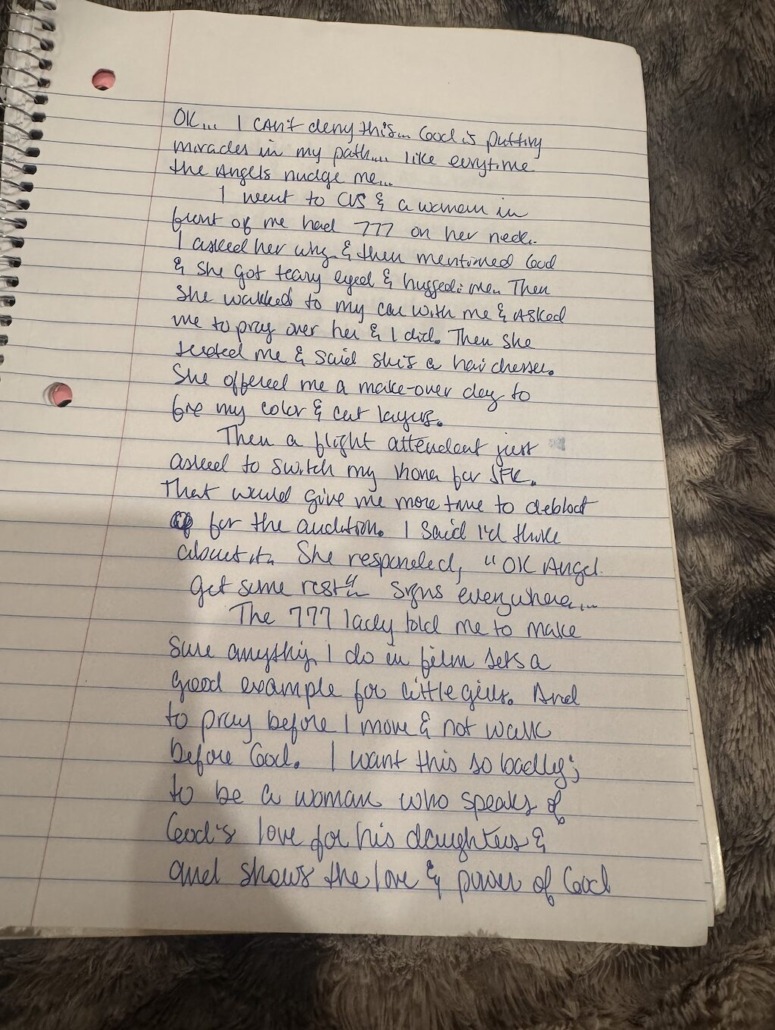 OK... I CAN't deny this... God is putting
miracles in my path.... like everytime
the Angels nudge me...
I went to CVS & a woman in
front of me had 777 on her neck.
I asked her why & then mentioned God
& she got teary eyed & hugged me. Then
She walked to my car with me & ASKed
me to pray over her & I did. Then she
texted me & said she's a hair dresser.
She offered me a make-over day to
fix my color & cut layers.
Then a flight attendent just
asked to switch my for JFK.
That would give me more time to debloat
for the audition. I said I'd think
about it. She responded, "OK Angel
get some rest" Signs everywhere...
The 777 lady told me to make
Sure anything I do in film sets a
good example for little girls. And
to pray before I move & not walk
before God. I want this so badly;
to be a woman who speaks of
God's love for his daughters &
and shows the love & power of God